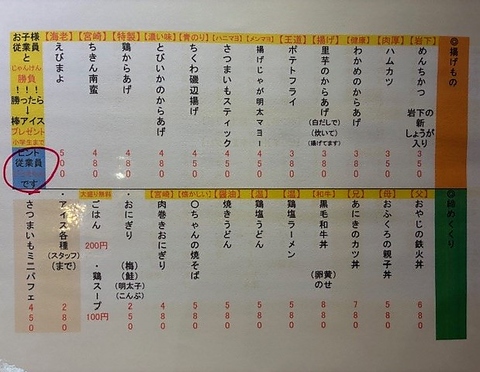 ◎揚げもの
【岩下】
めんちかつ 岩下の新しょうが入り
350
【肉厚】
ハムカツ
350
【健康】
わかめのからあげ
380
【揚げ】
里芋のからあげ
(白だしで)
(炊いて)
(揚げてます)
380
【王道】
ポテトフライ
380
【メンマヨ】
揚げじゃが明太マヨー
450
【ハニマヨ】
さつまいもスティック
450
【青のり】
ちくわ磯辺揚げ
480
【濃い味】
とびいかのからあげ
480
【特製】
鶏からあげ
480
【宮崎】
ちきん南蛮
480
【海老】
えびまよ
500
お子様
従業員
と
じゃんけん
勝負
!!!
勝ったら
↓
棒アイス
プレゼント
小学生まで
ヒント
従業員
です
◎締めくくり
【父】
おやじの鉄火丼
680
【母】
おふくろの親子丼
550
【兄】
あにきのカツ丼
780
【和牛】
黒毛和牛丼
(卵黄のせ)
880
【温】
鶏塩ラーメン
580
【温】
鶏塩うどん
580
【醤油】
焼きうどん
580
【懐かしい】
〇ちゃんの焼そば
550
【宮崎】
肉巻きおにぎり
480
・おにぎり
(梅)
(鮭)
(明太子)
(こんぶ)
250
大盛り無料
・ごはん 200円
・鶏スープ 100円
・アイス各種
(スタッフ)
(まで)
280
・さつまいもミニパフェ
450